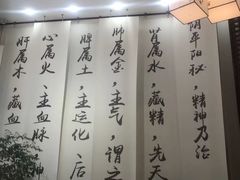 阴平阳秘，精神乃治
肾属水，藏精，先天
肺属金，主气，谓之
脾属土，主运化，后
心属火，主血脉
肝属木，藏血